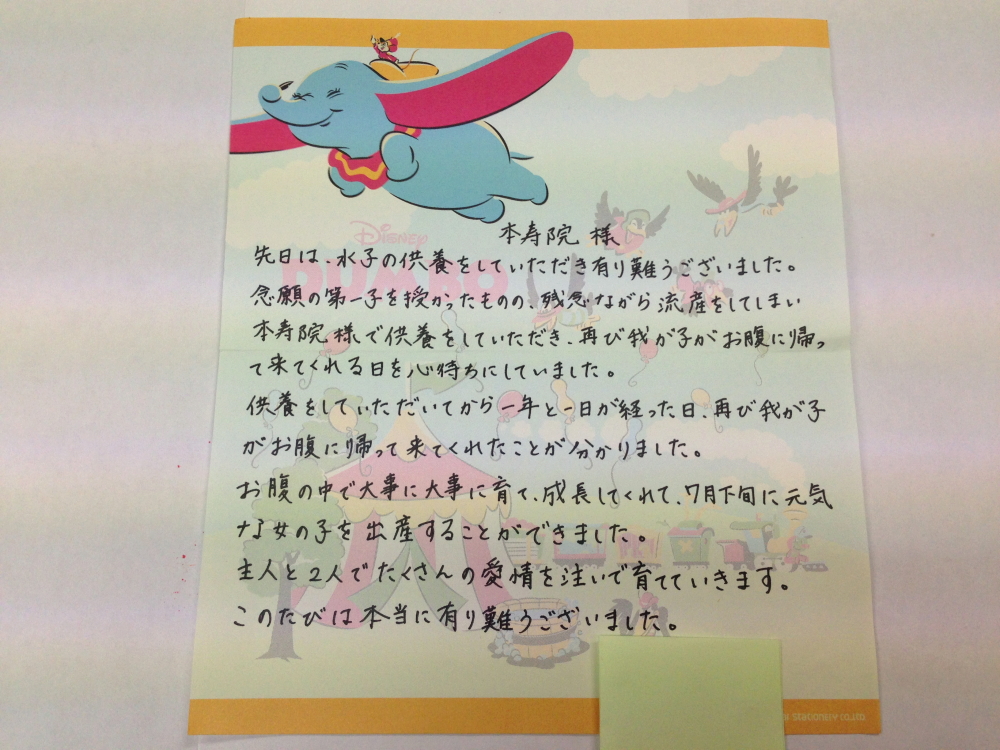 本寿院 様
先日は、水子の供養をしていただき有り難うございました。
念願の第一子を授かったものの、残念ながら流産をしてしまい
本寿院様で供養をしていただき、再び我が子がお腹に帰っ
て来てくれる日を心待ちにしていました。
供養をしていただいてから一年と一日が経った日、再び我が子
がお腹に帰って来てくれたことが分かりました。
お腹の中で大事に大事に育て、成長してくれて、7月下旬に元気
な女の子を出産することができました。
主人と2人でたくさんの愛情を注いで育てていきます。
このたびは本当に有り難うございました。
Disney
DUMBO
STATIONERY CO.,LTD.